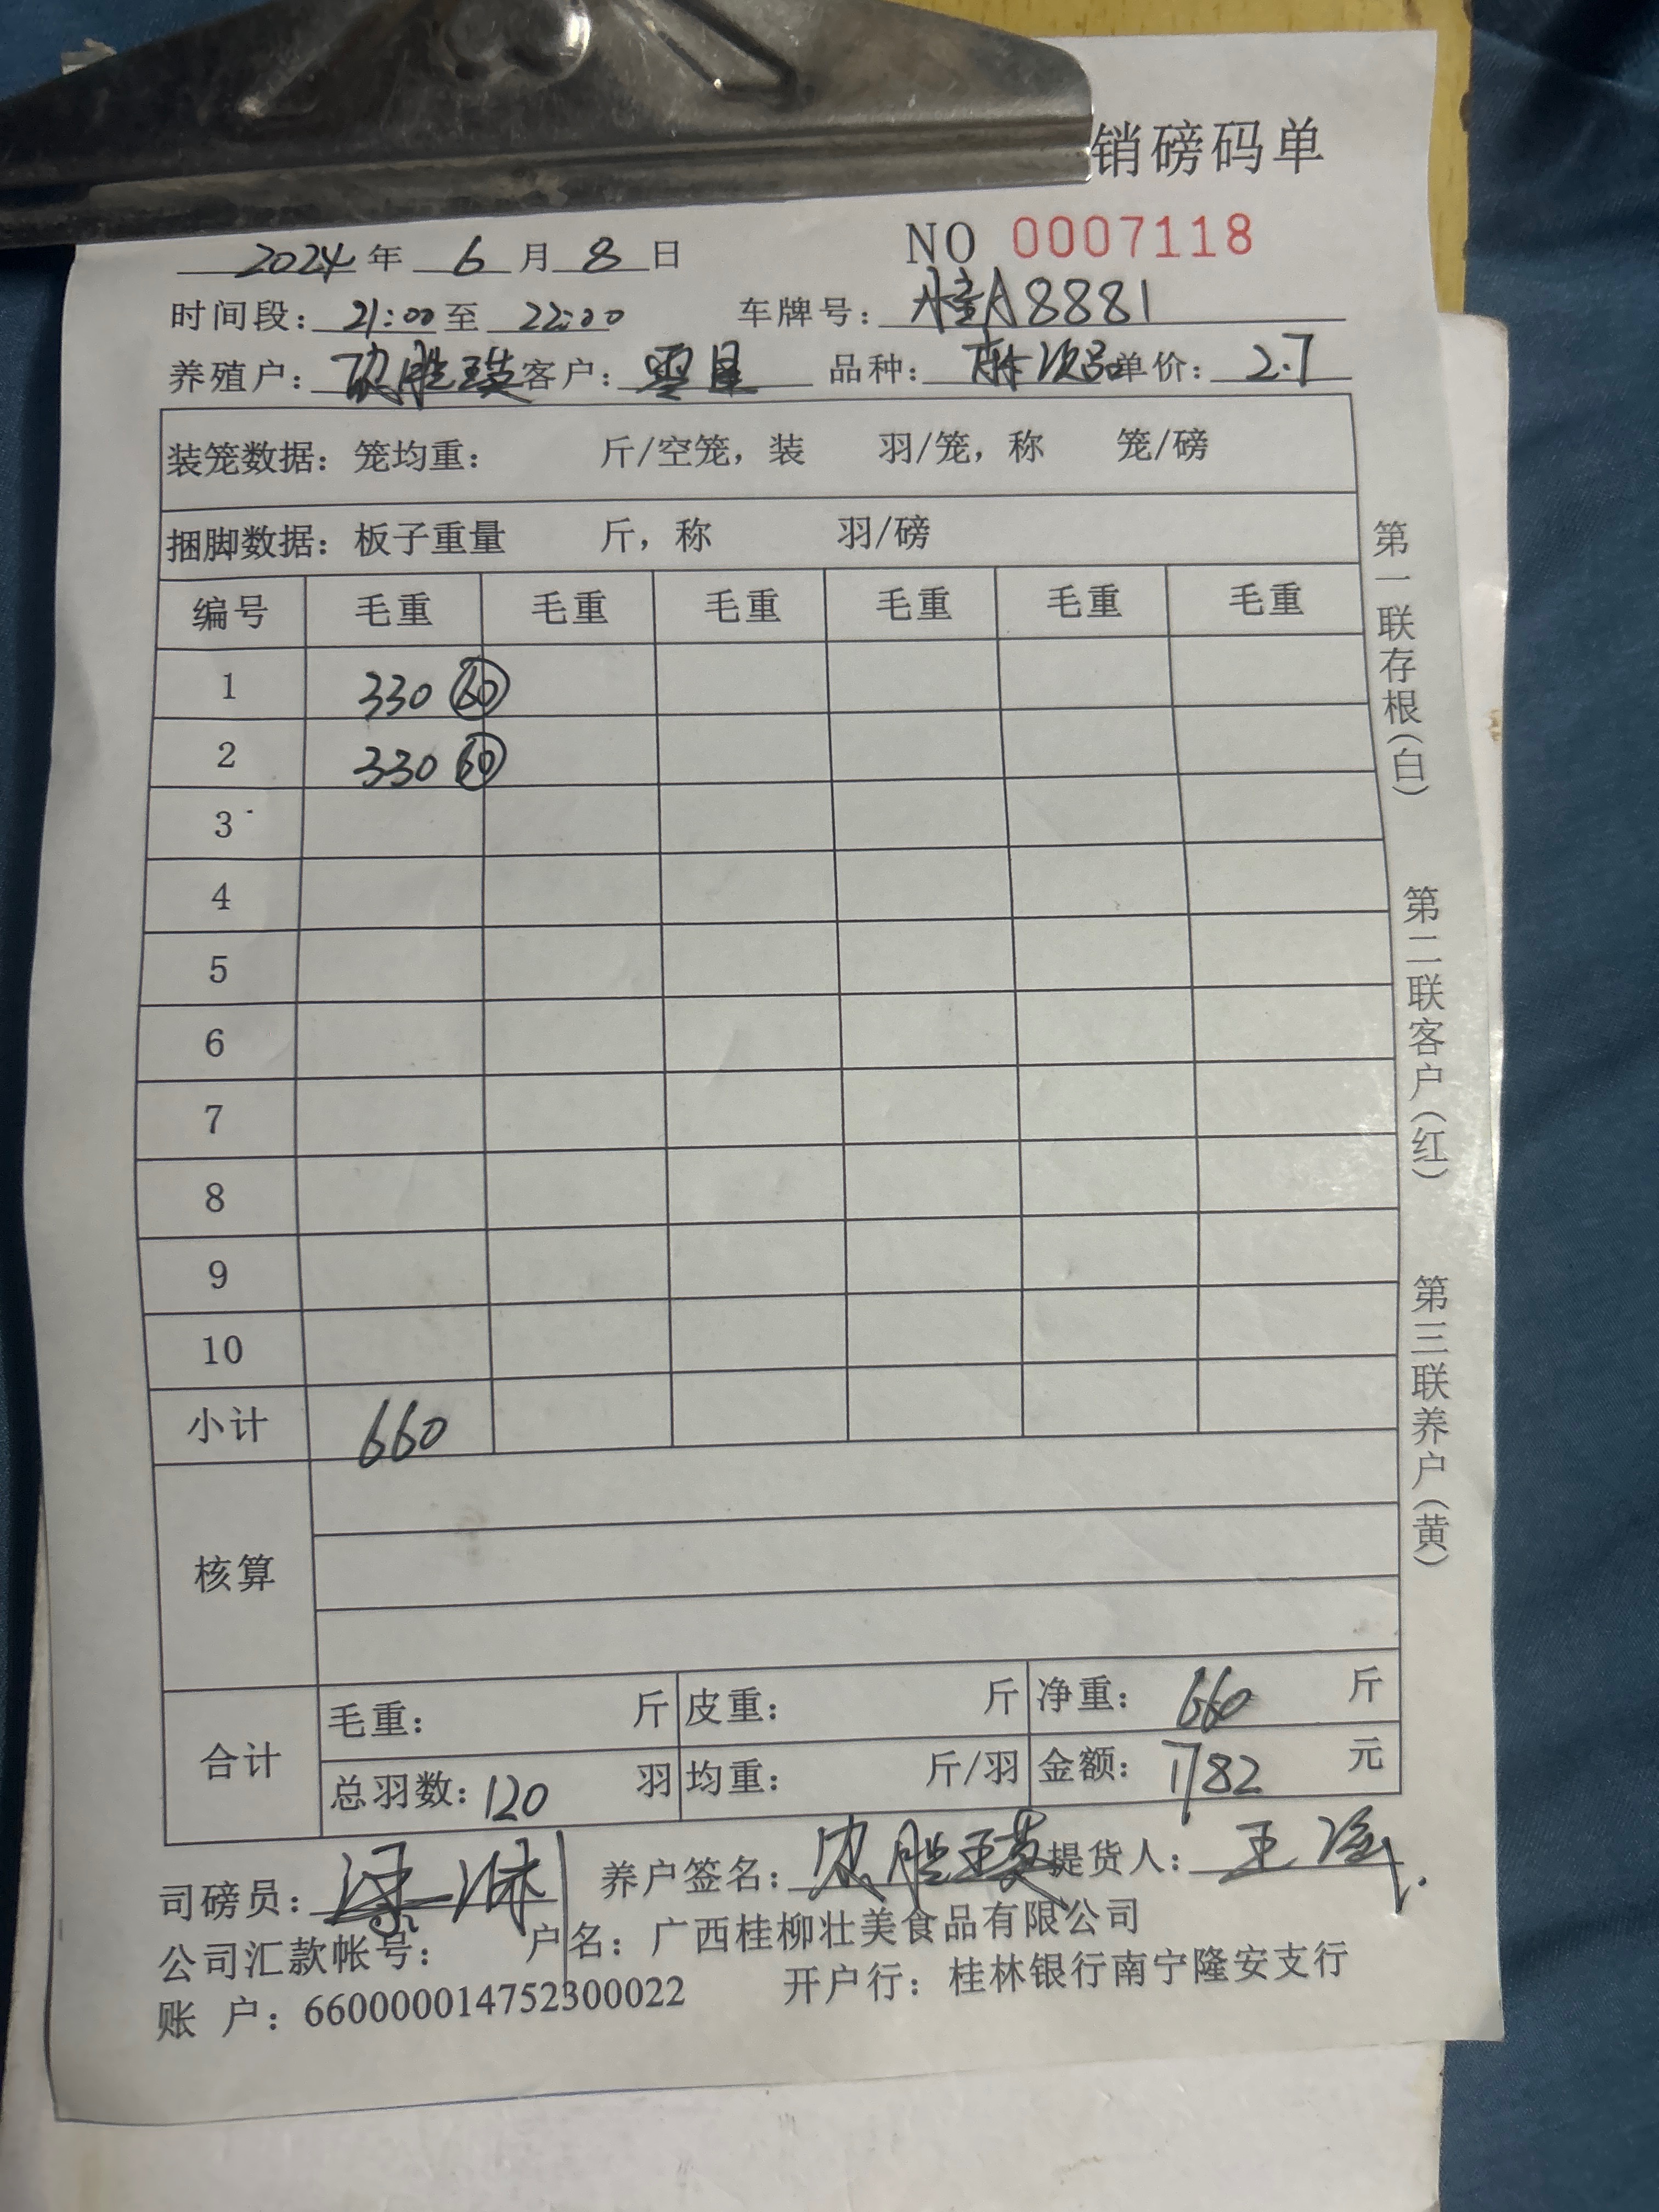 销磅码单
2024年 6月8日 NO 0007118
时间段：21:00至 22:00 车牌号：桂A8881
养殖户： 客户：零星 品种： 次品 单价：2.7
装笼数据：笼均重： 斤/空笼，装 羽/笼，称 笼/磅
捆脚数据：板子重量 斤，称 羽/磅
编号 毛重 毛重 毛重 毛重 毛重 毛重
1 330 60
2 330 60
3
4
5
6
7
8
9
10
小计 660
核算
合计 毛重： 斤 皮重： 斤 净重：660 斤
总羽数：120 羽 均重： 斤/羽 金额：1782 元
司磅员： 养户签名： 提货人：王
公司汇款帐号： 户名：广西桂柳壮美食品有限公司
账 户：660000014752300022 开户行：桂林银行南宁隆安支行
第一联存根（白）
第二联客户（红）
第三联养户（黄）